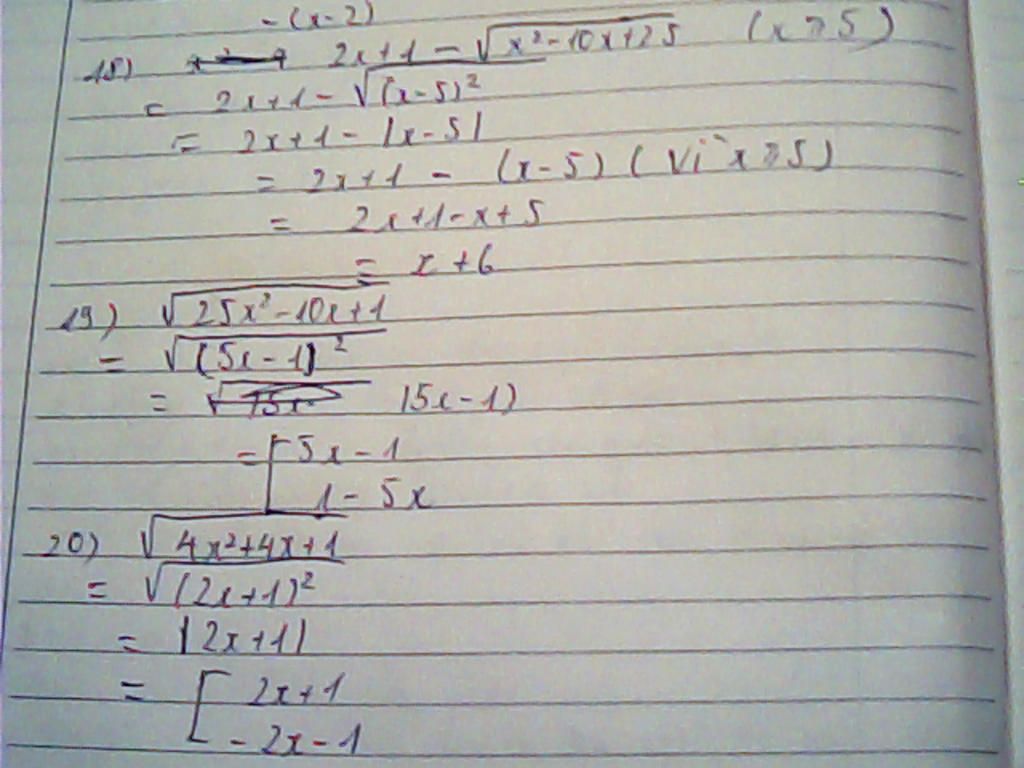 - (x-2)
18) 2x+1 - √(x²-10x+25) (x ≥ 5)
= 2x+1 - √(x-5)²
= 2x+1 - |x-5|
= 2x+1 - (x-5) (Vì x ≥ 5)
= 2x+1-x+5
= x+6
19) √(25x²-10x+1)
= √(5x-1)²
= |5x-1|
= [ 5x-1
1-5x
20) √(4x²+4x+1)
= √(2x+1)²
= |2x+1|
= [ 2x+1
-2x-1